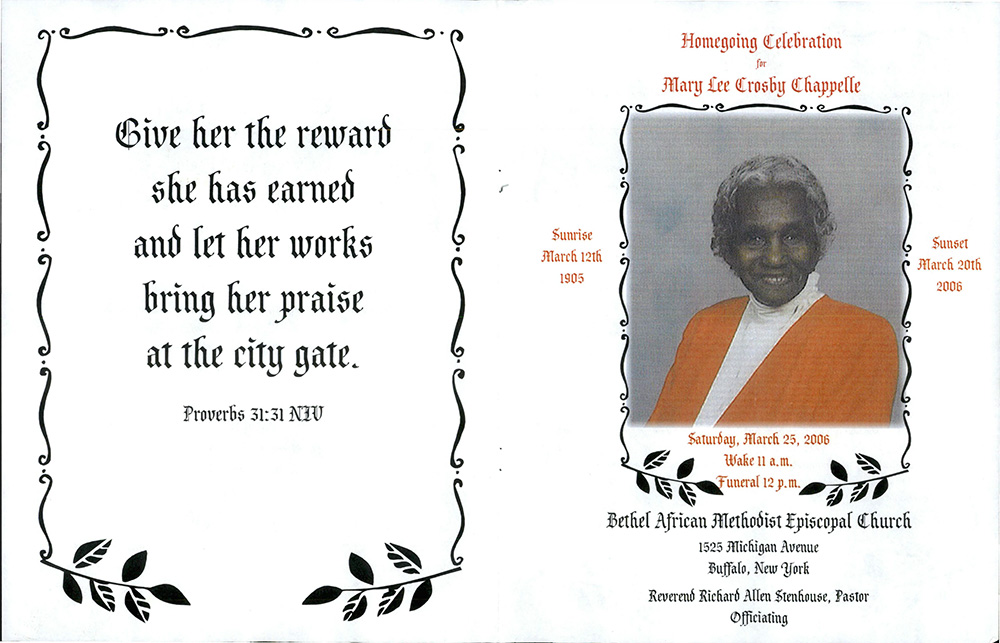 Give her the reward
she has earned
and let her works
bring her praise
at the city gate.
Proverbs 31:31 NIV
Homegoing Celebration
for
Mary Lee Crosby Chappelle
Sunrise
March 12th
1905
Sunset
March 20th
2006
Saturday, March 25, 2006
Wake 11 a.m.
Funeral 12 p.m.
Bethel African Methodist Episcopal Church
1525 Michigan Avenue
Buffalo, New York
Reverend Richard Allen Stenhouse, Pastor
Officiating